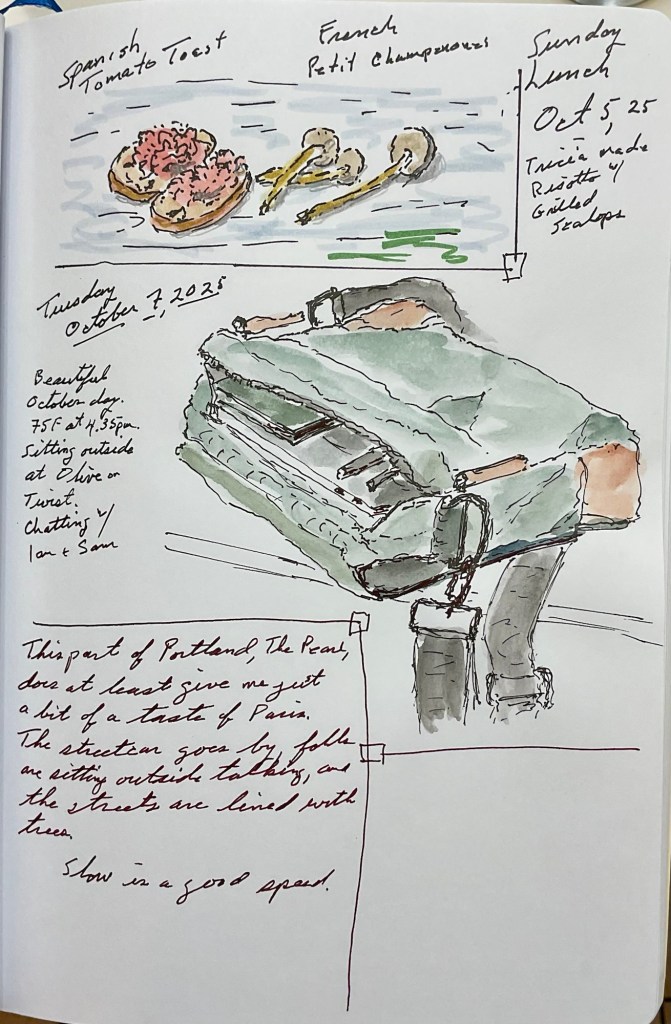 Spanish
Tomato Toast
French
Petit Champenones
Sunday
Lunch
Oct 5, 25
Tricia made
Risotto w/
Grilled
Scalops
Tuesday
October 7, 2025
Beautiful
October day.
75F at 4.35pm.
Sitting outside
at Olive or
Twist.
Chatting w/
Ian + Sam
This part of Portland, The Pearl,
does at least give me just
a bit of a taste of Paris.
The streetcar goes by, folks
are sitting outside talking, and
the streets are lined with
trees.
Slow is a good speed.